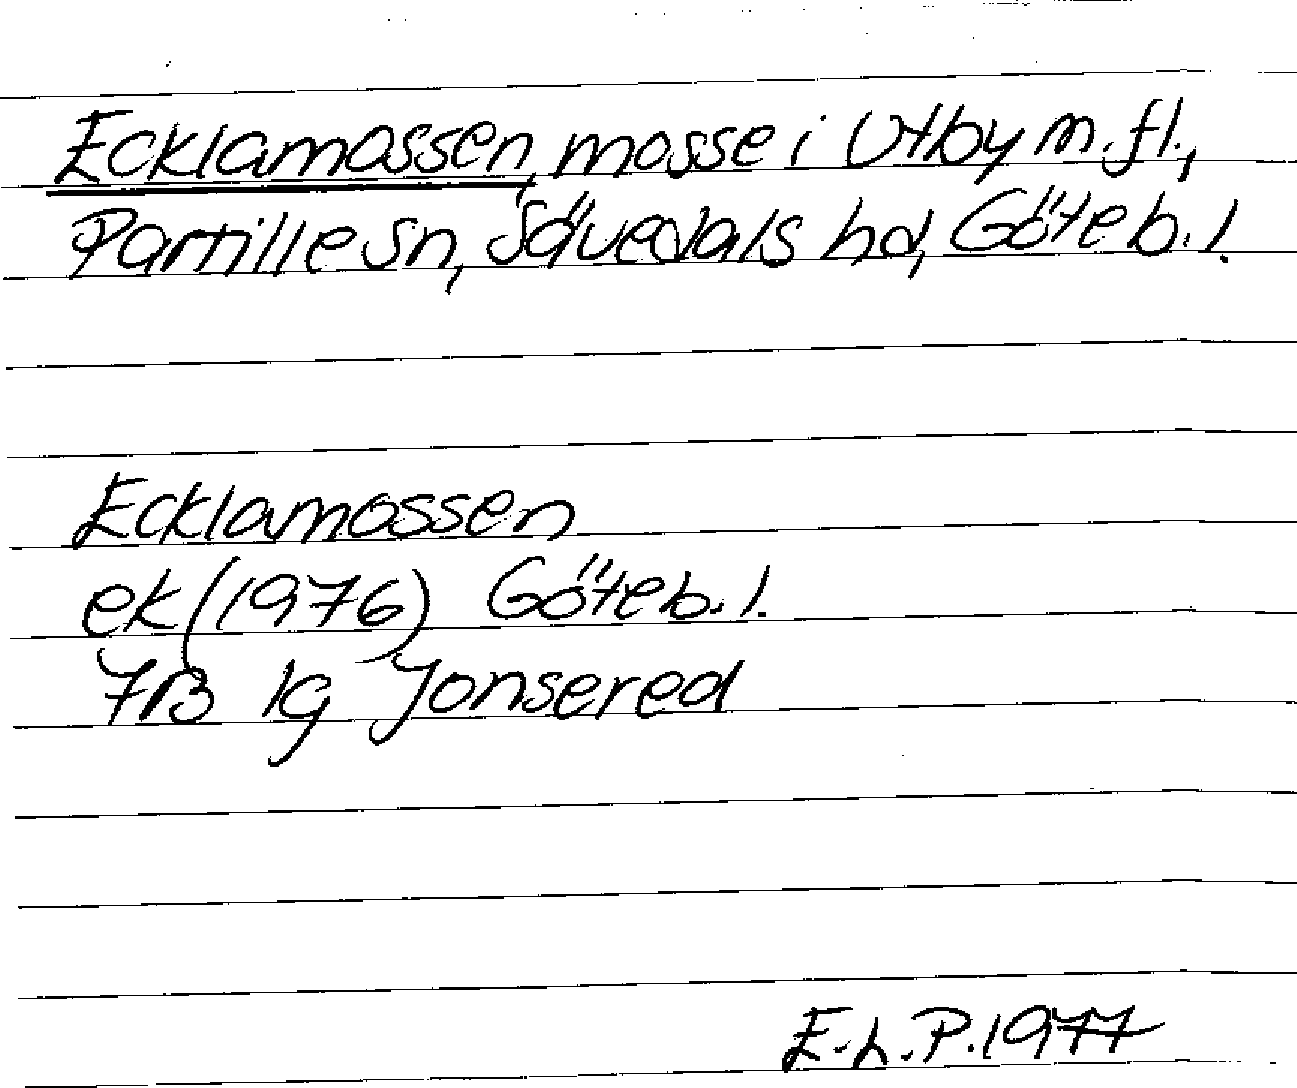 Ecklamossen, mosse i Utby m.fl.,
Partille sn, Sävedals hd, Göteb. l.
Ecklamossen
ek (1976) Göteb. l.
7B 1g Jonsered
E.L.P. 1977